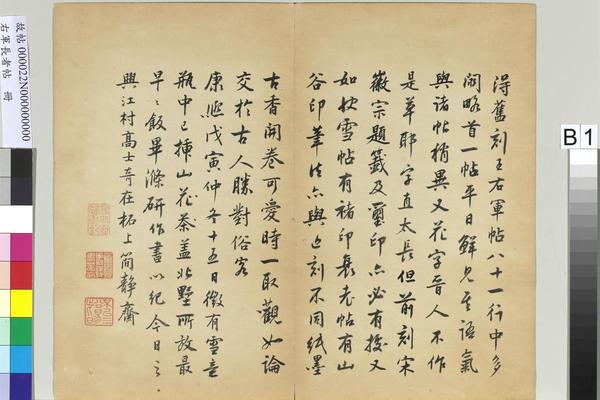 得舊刻王右軍帖八十一行中多
闊略首一帖平日鮮見其語氣
與諸帖稍異又花字晉人不作
是草耶字直太長但前刻宋
徽宗題籤及璽印亦必有授又
如快雪帖有褚印袁老帖有山
谷印筆法亦與近刻不同紙墨
古香開卷可愛時一取觀如論
交於古人勝對俗客
康熙戊寅仲冬十五日微有雪意
瓶中已插山花茶盖北墅所放最
早〻飯畢滌研作書以紀今日之
興江村高士奇在柘上簡靜齋
故帖 000022N000000000
右軍長者帖 冊
B 1